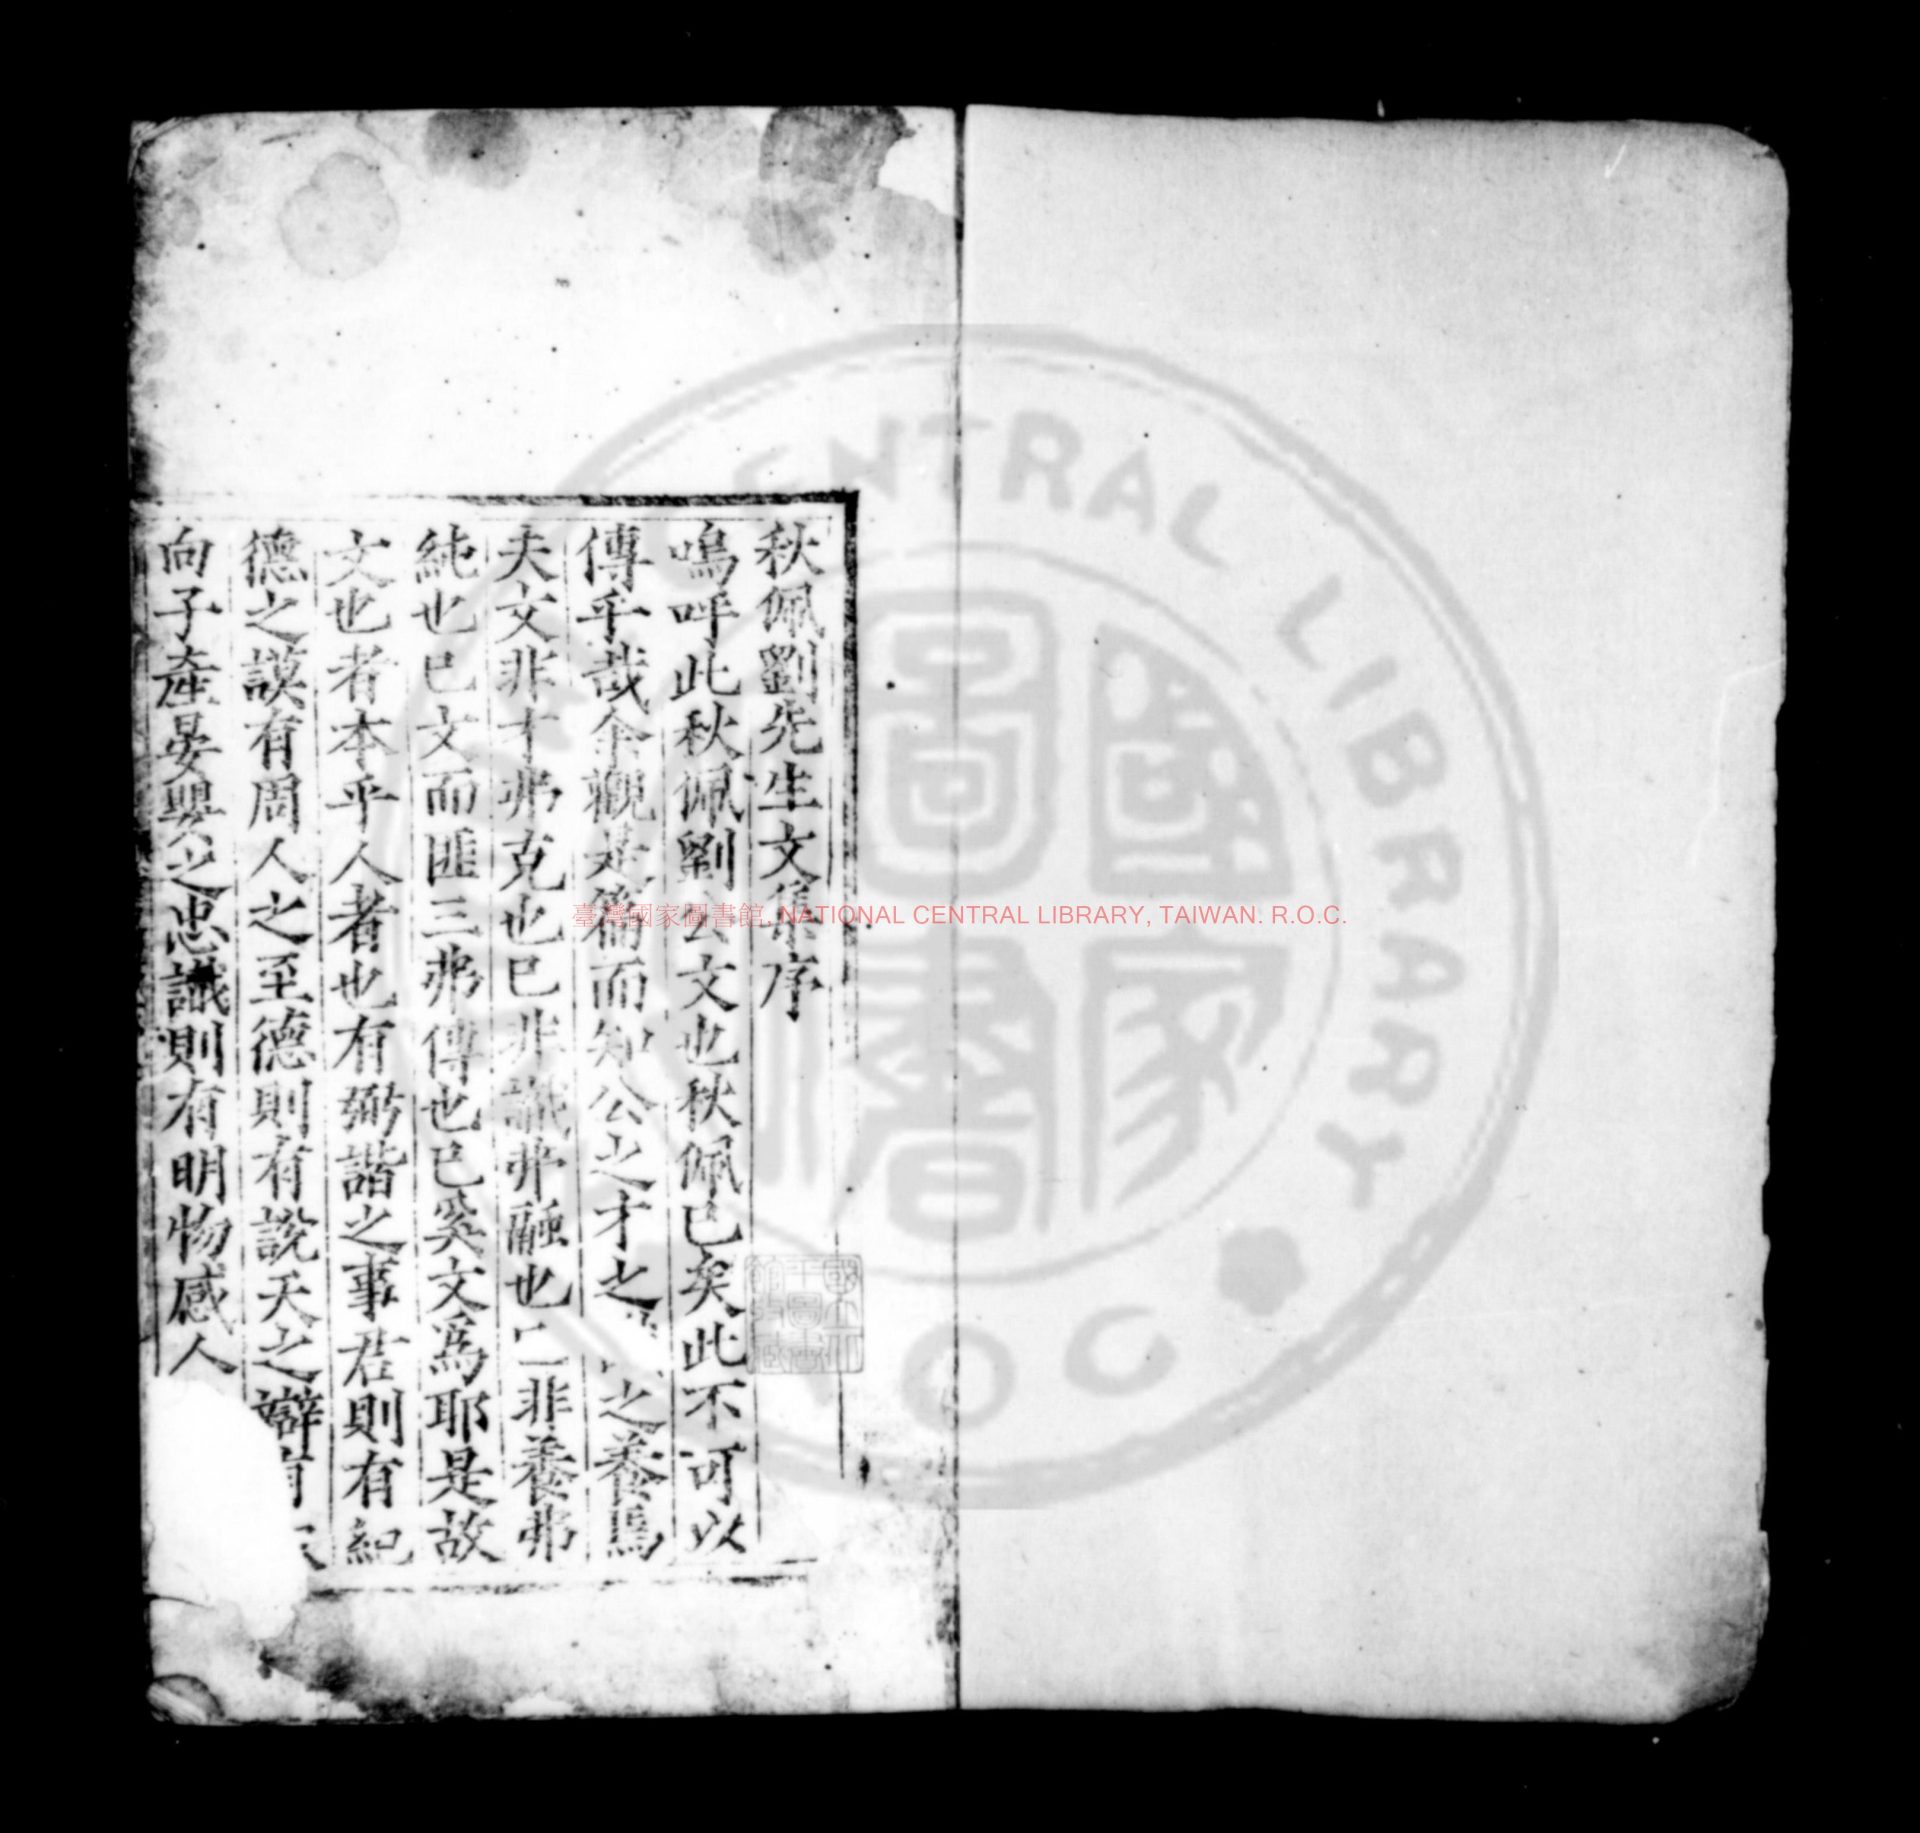 秋佩劉先生文集序
嗚呼此秋佩劉公文也秋佩已矣此不可以
傳乎哉余觀是編而知公之才之之養焉
夫文非才弗克也已非識弗融也已非養弗
純也已文而匪三弗傳也已奚文爲耶是故
文也者本乎人者也有弼諧之事君則有紀
德之謨有周人之至德則有說天之辯有
向子產晏嬰之忠識則有明物感人
臺灣國家圖書館, NATIONAL CENTRAL LIBRARY, TAIWAN. R.O.C.
CENTRAL LIBRARY
國家圖書